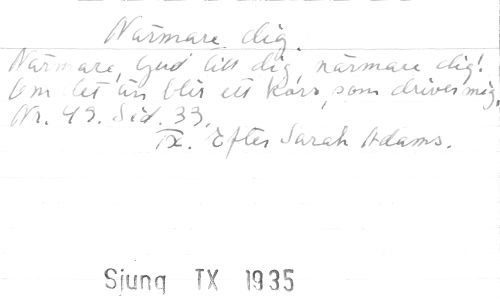 Närmare dig.
Närmare, Gud till dig, närmare dig!
Om det än blir ett kors, som driver mig,
Nr. 49. Sid. 33.
Tx. Efter Sarah Adams.
Sjung TX 1935